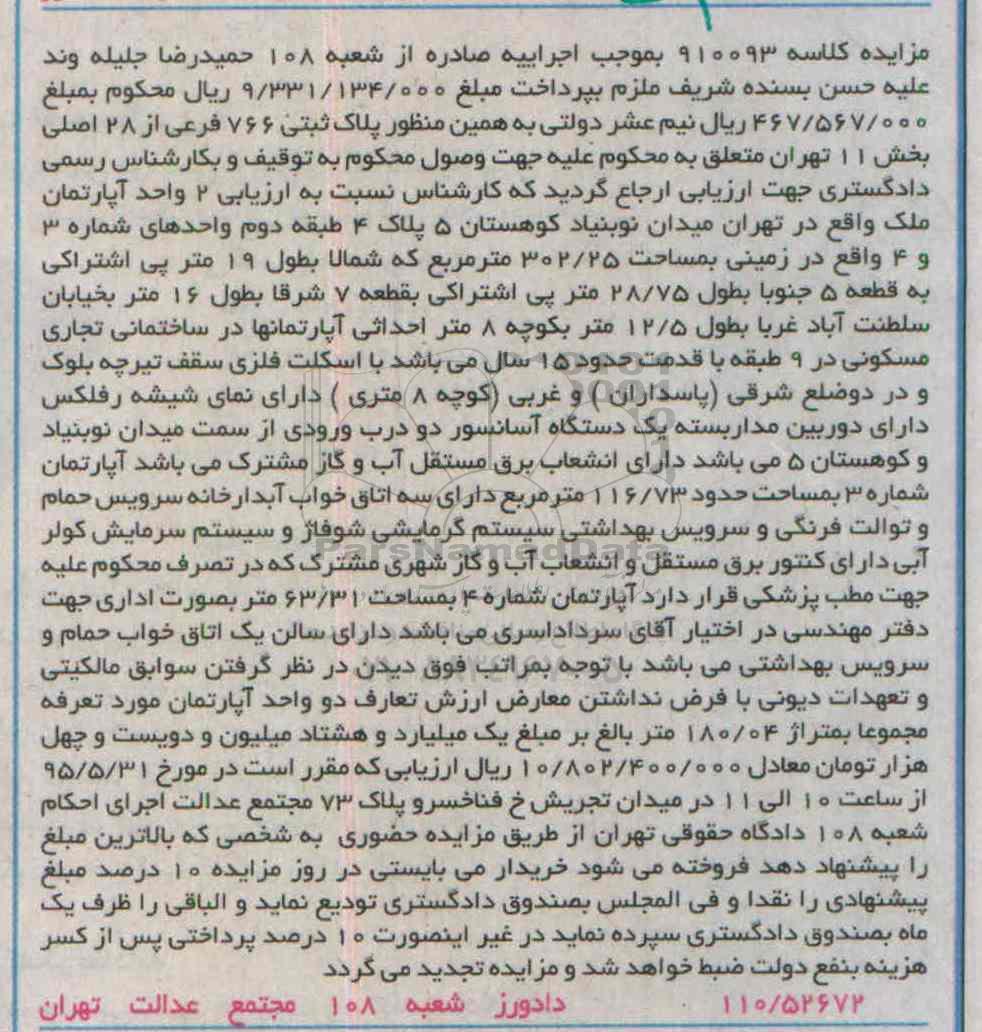 مزایده کلاسه ۹۱۰۰۹۳ بموجب اجراییه صادره از شعبه ۱۰۸ حمیدرضا جلیله وند
علیه حسن بسنده شریف ملزم بپرداخت مبلغ ۹/۳۳۱/۱۳۴/۰۰۰ ریال محکوم بمبلغ
۴۶۷/۵۶۷/۰۰۰ ریال نیم عشر دولتی به همین منظور پلاک ثبتی ۷۶۶ فرعی از ۲۸ اصلی
بخش ۱۱ تهران متعلق به محکوم علیه جهت وصول محکوم به توقیف و بکارشناس رسمی
دادگستری جهت ارزیابی ارجاع گردید که کارشناس نسبت به ارزیابی ۲ واحد آپارتمان
ملک واقع در تهران میدان نوبنیاد کوهستان ۵ پلاک ۴ طبقه دوم واحدهای شماره ۳
و ۴ واقع در زمینی بمساحت ۳۰۲/۲۵ مترمربع که شمالا بطول ۱۹ متر پی اشتراکی
به قطعه ۵ جنوبا بطول ۲۸/۷۵ متر پی اشتراکی بقطعه ۷ شرقا بطول ۱۶ متر بخیابان
سلطنت آباد غربا بطول ۱۲/۵ متر بکوچه ۸ متر احداثی آپارتمانها در ساختمانی تجاری
مسکونی در ۹ طبقه با قدمت حدود ۱۵ سال می باشد با اسکلت فلزی سقف تیرچه بلوک
و در دوضلع شرقی (پاسداران ) و غربی (کوچه ۸ متری ) دارای نمای شیشه رفلکس
دارای دوربین مداربسته یک دستگاه آسانسور دو درب ورودی از سمت میدان نوبنیاد
و کوهستان ۵ می باشد دارای انشعاب برق مستقل آب و گاز مشترک می باشد آپارتمان
شماره ۳ بمساحت حدود ۱۱۶/۷۳ مترمربع دارای سه اتاق خواب آبدارخانه سرویس حمام
و توالت فرنگی و سرویس بهداشتی سیستم گرمایشی شوفاژ و سیستم سرمایش کولر
آبی دارای کنتور برق مستقل و انشعاب آب و گاز شهری مشترک که در تصرف محکوم علیه
جهت مطب پزشکی قرار دارد آپارتمان شماره ۴ بمساحت ۶۳/۳۱ متر بصورت اداری جهت
دفتر مهندسی در اختیار آقای سرداداسری می باشد دارای سالن یک اتاق خواب حمام و
سرویس بهداشتی می باشد با توجه بمراتب فوق دیدن در نظر گرفتن سوابق مالکیتی
و تعهدات دیونی با فرض نداشتن معارض ارزش تعارف دو واحد آپارتمان مورد تعرفه
مجموعا بمتراژ ۱۸۰/۰۴ متر بالغ بر مبلغ یک میلیارد و هشتاد میلیون و دویست و چهل
هزار تومان معادل ۱۰/۸۰۲/۴۰۰/۰۰۰ ریال ارزیابی که مقرر است در مورخ ۹۵/۵/۳۱
از ساعت ۱۰ الی ۱۱ در میدان تجریش خ فناخسرو پلاک ۷۳ مجتمع عدالت اجرای احکام
شعبه ۱۰۸ دادگاه حقوقی تهران از طریق مزایده حضوری به شخصی که بالاترین مبلغ
را پیشنهاد دهد فروخته می شود خریدار می بایستی در روز مزایده ۱۰ درصد مبلغ
پیشنهادی را نقدا و فی المجلس بصندوق دادگستری تودیع نماید و الباقی را ظرف یک
ماه بصندوق دادگستری سپرده نماید در غیر اینصورت ۱۰ درصد پرداختی پس از کسر
هزینه بنفع دولت ضبط خواهد شد و مزایده تجدید می گردد
۱۱۰/۵۲۶۷۲ دادورز شعبه ۱۰۸ مجتمع عدالت تهران
ParsNamadData